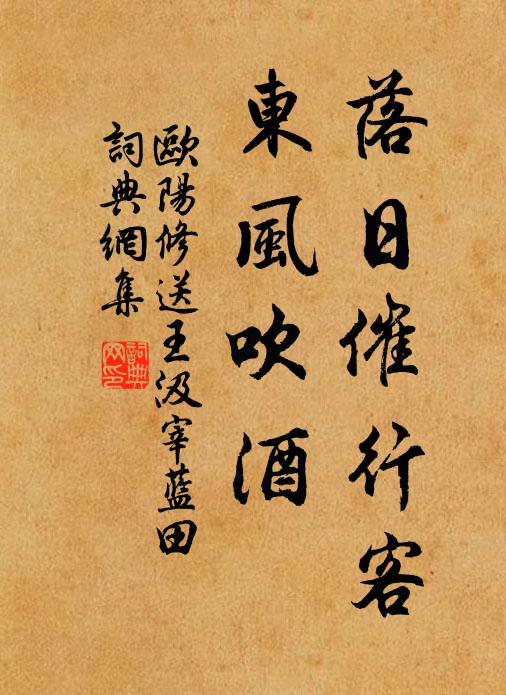 落日催行客
東風吹酒
歐陽修送王汲宰藍田
詞典網集
詞典網印